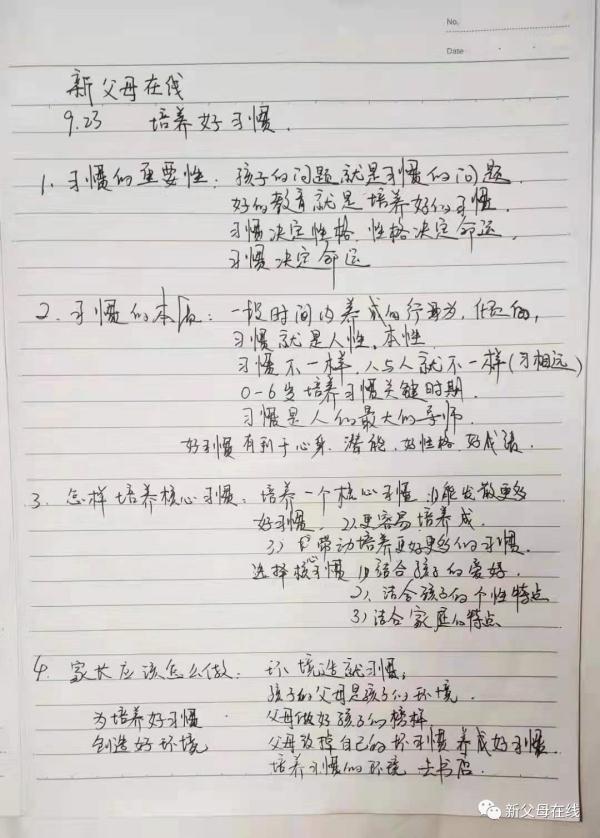 No.
Date
新父母在线
9.23 培养好习惯.
1. 习惯的重要性: 孩子的问题就是习惯的问题.
好的教育就是培养好的习惯.
习惯决定性格. 性格决定命运.
习惯决定命运
2. 习惯的本质: 一段时间内养成的行为,
习惯就是人性, 本性.
习惯不一样, 人与人就不一样(习相远)
0-6岁培养习惯关键时期.
习惯是人们最大的导师.
好习惯有利于心身. 潜能. 好性格. 好成绩.
3. 怎样培养核心习惯: 培养一个核心习惯 1)能发散更多
好习惯. 2)更容易培养成.
3) 带动培养更多的习惯.
选择核心习惯 1)结合孩子的爱好.
2) 结合孩子的个性特点
3)结合家庭的特点
4. 家长应该怎么做: 环境造就习惯,
孩子的父母是孩子们环境.
为培养好习惯 父母做好孩子们榜样
创造好环境 父母改掉自己的坏习惯养成好习惯.
培养习惯的环境 去书店.
新父母在线